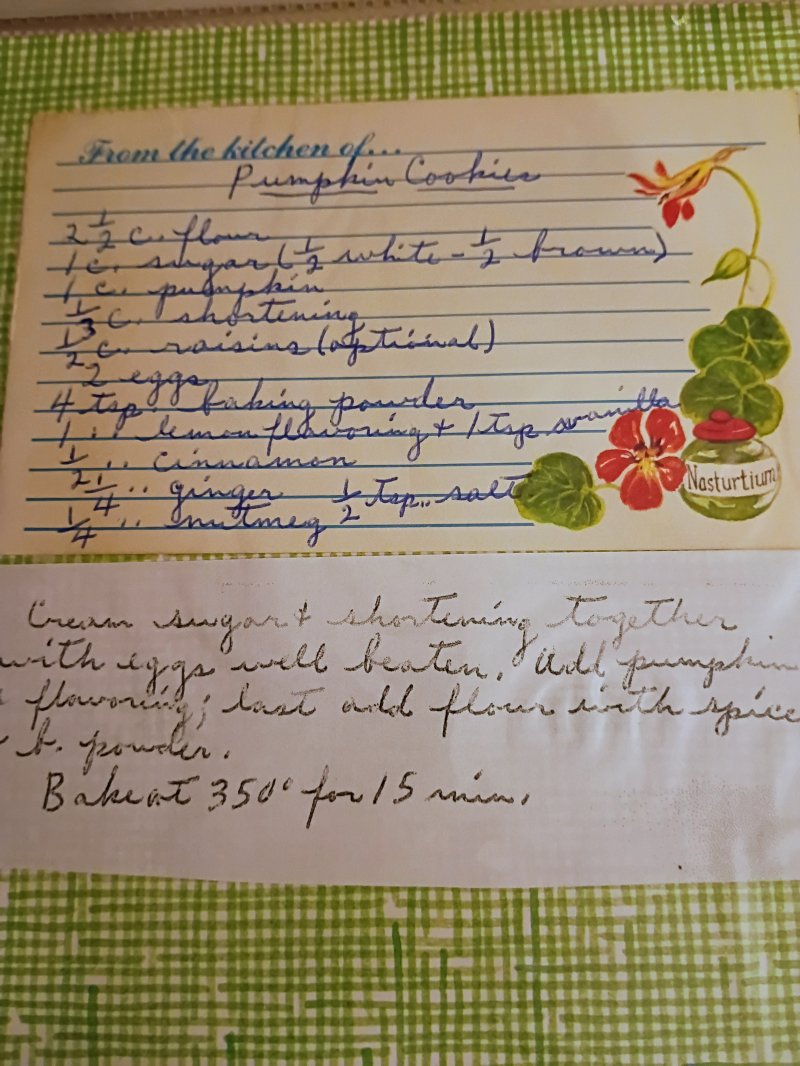 From the kitchen of...
Pumpkin Cookies
2 1/2 c. flour
1 c. sugar (1/2 white - 1/2 brown)
1 c. pumpkin
1/3 c. shortening
1/2 c. raisins (optional)
2 eggs
4 tsp. baking powder
1 " lemon flavoring + 1 tsp vanilla
1/2 " cinnamon
1/4 " ginger 1/2 tsp. salt
1/4 " nutmeg
Nasturtium
Cream sugar + shortening together
with eggs well beaten. Add pumpkin
flavoring; last add flour with spice
b. powder.
Bake at 350° for 15 min.